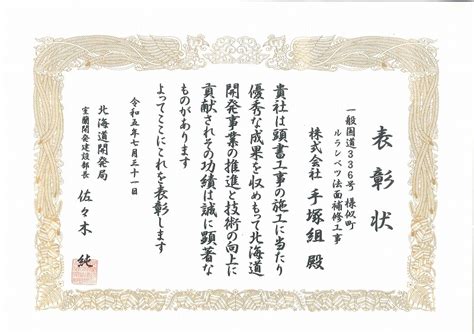 表彰状
一般国道336号 様似町
ルランベツ法面補修工事
株式会社 手塚組 殿
貴社は頭書工事の施工に当たり
優秀な成果を収めもって北海道
開発事業の推進と技術の向上に
貢献されその功績は誠に顕著な
ものがあります
よってここにこれを表彰します
令和五年七月三十一日
北海道開発局
室蘭開発建設部長 佐々木 純